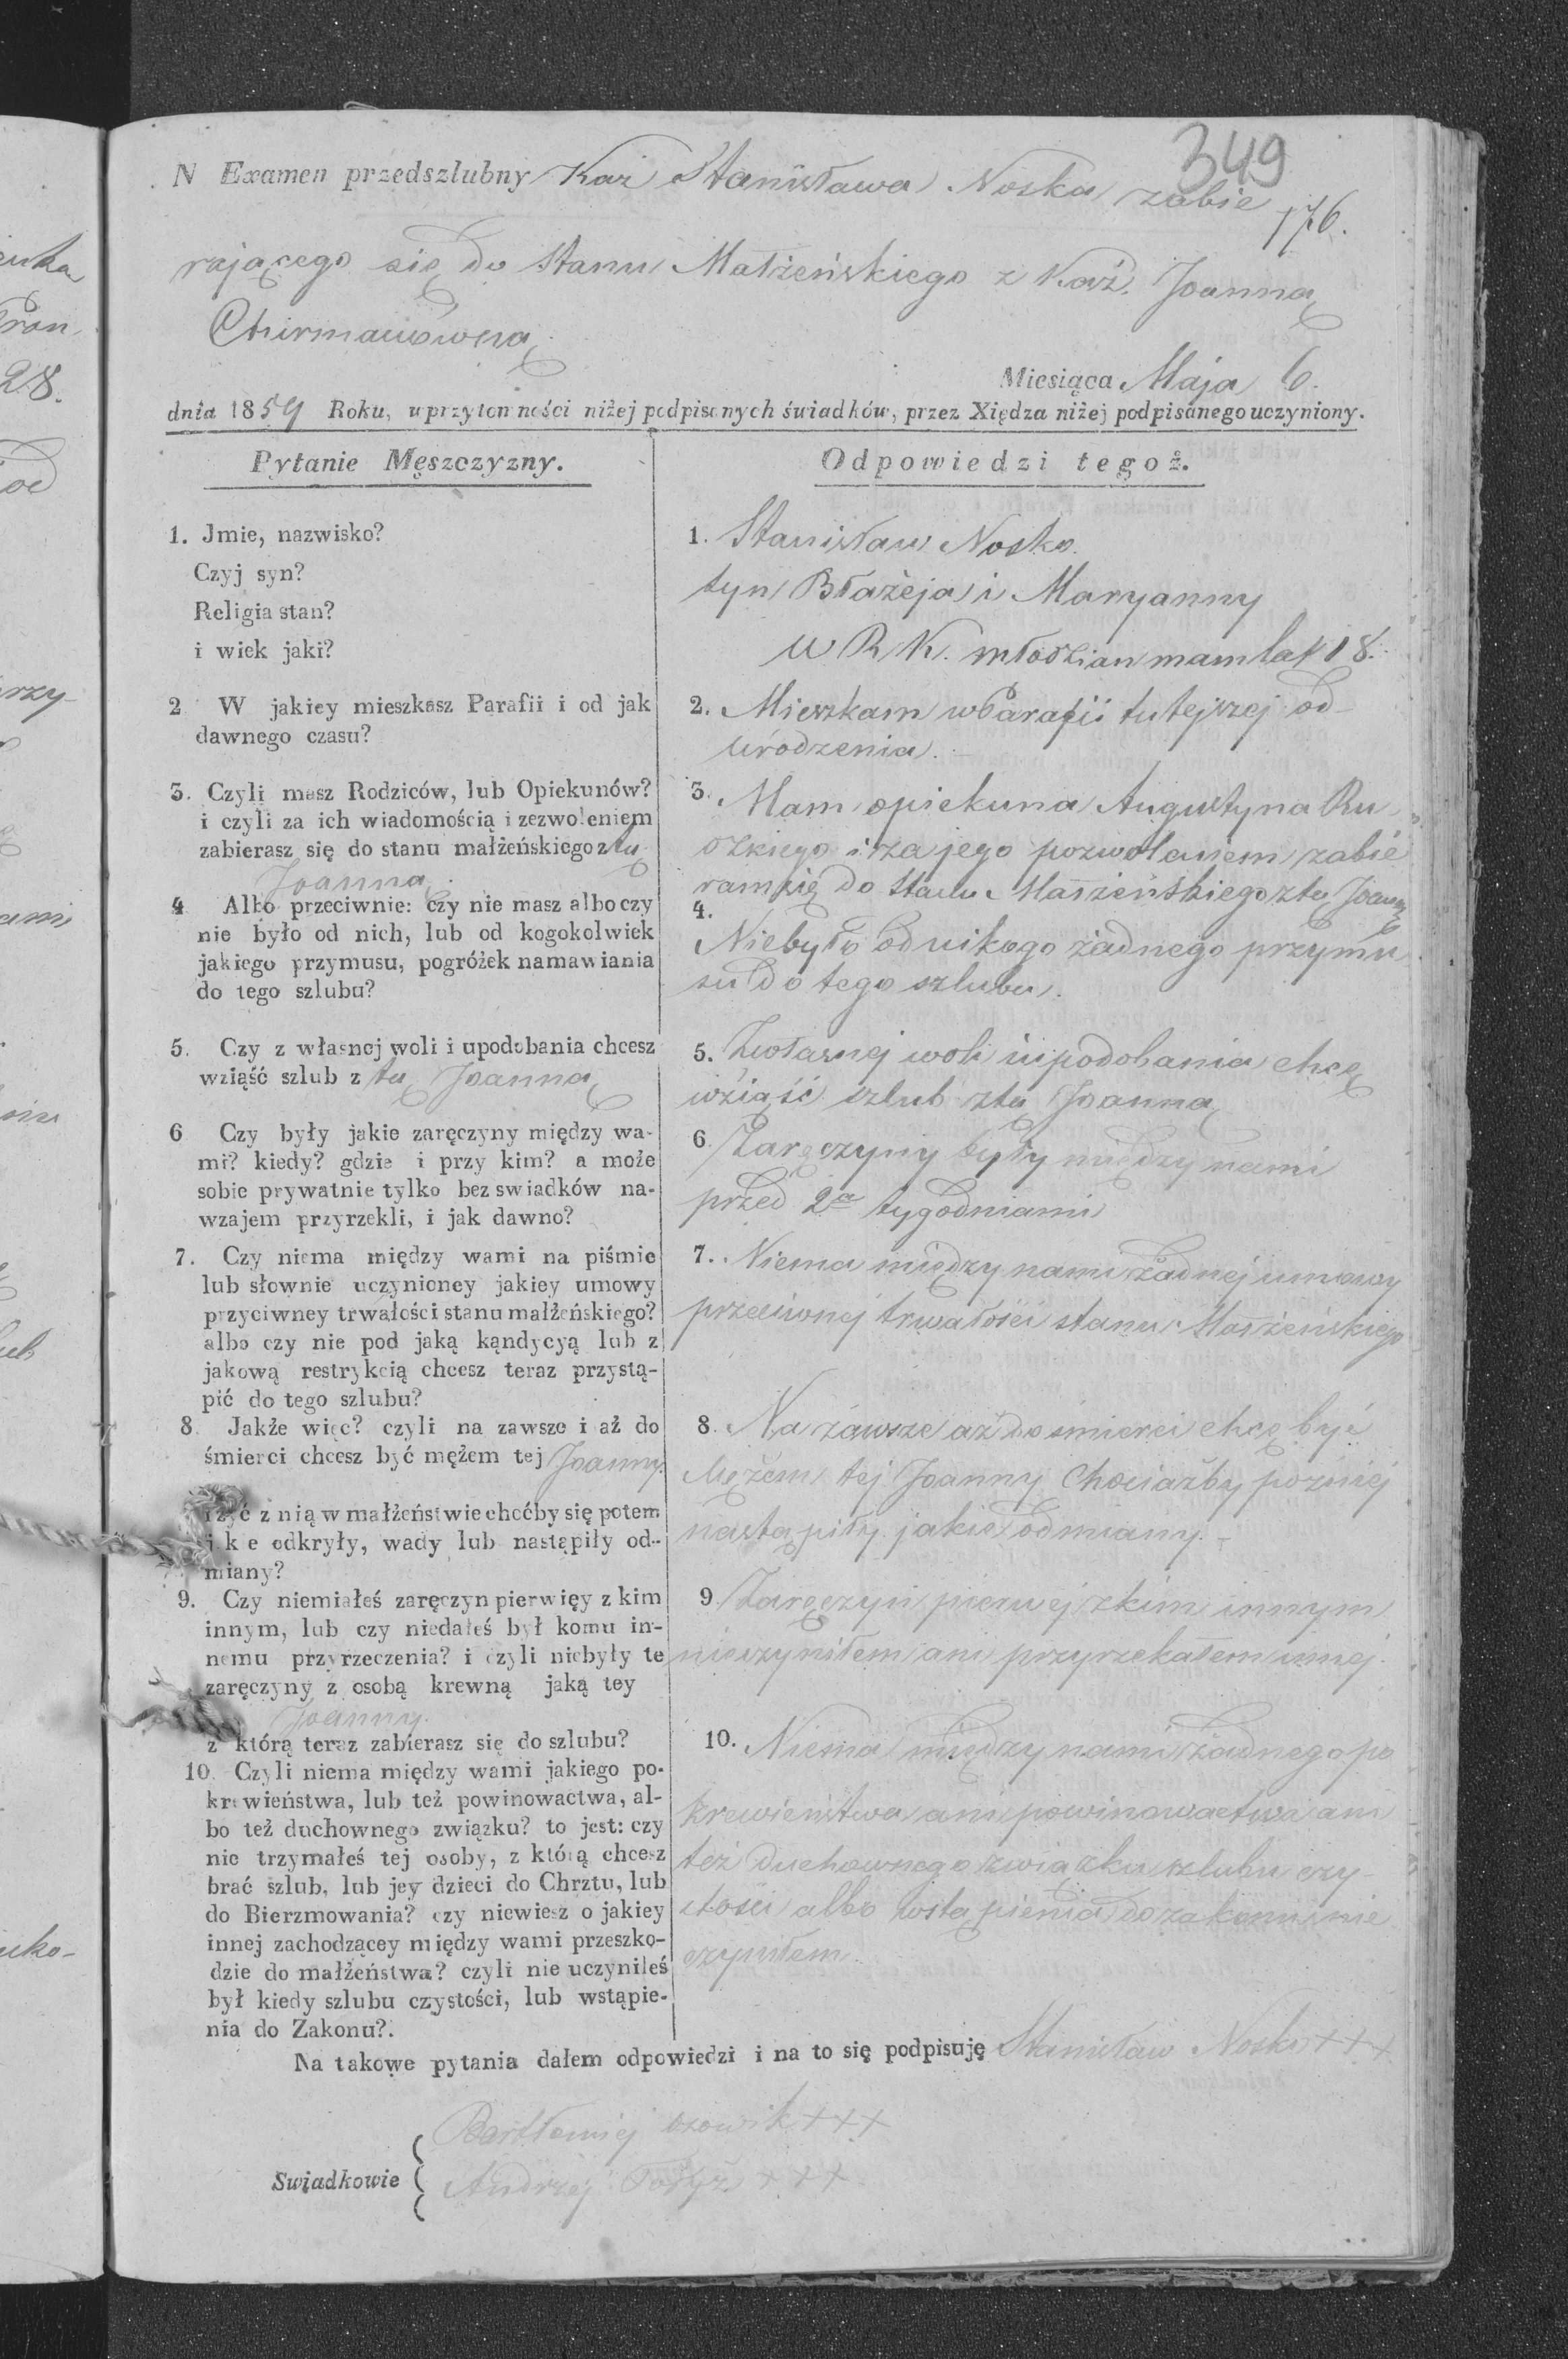 349
N Examen przedszlubny Kaz Stanisława Noska zabie
176.
rającego się do Stanu Małżeńskiego z Kaź. Joanną
Miesiąca Maja 6.
dnia 1859 Roku, w przytomności niżej podpisanych świadków, przez Xiędza niżej podpisanego uczyniony.
Pytanie Męszczyzny.
1. Jmie, nazwisko?
Czyj syn?
Religia stan?
i wiek jaki?
2 W jakiey mieszkasz Parafii i od jak
dawnego czasu?
3. Czyli masz Rodziców, lub Opiekunów?
i czyli za ich wiadomością i zezwoleniem
zabierasz się do stanu małżeńskiego z tą
Joanną
4 Albo przeciwnie: czy nie masz albo czy
nie było od nich, lub od kogokolwiek
jakiego przymusu, pogróżek namawiania
do tego szlubu?
5. Czy z własnej woli i upodobania chcesz
wziąść szlub z tą Joanną
6 Czy były jakie zaręczyny między wa-
mi? kiedy? gdzie i przy kim? a może
sobie prywatnie tylko bez swiadków na-
wzajem przyrzekli, i jak dawno?
7. Czy niema między wami na piśmie
lub słownie uczynioney jakiey umowy
przyciwney trwałości stanu małżeńskiego?
albo czy nie pod jaką kąndycyą lub z
jakową restrykcią chcesz teraz przystą-
pić do tego szlubu?
8. Jakże więc? czyli na zawsze i aż do
śmierci chcesz być mężem tej Joanny
i żyć z nią w małżeństwie choćby się potem
jakie odkryły, wady lub nastąpiły od-
miany?
9. Czy niemiałeś zaręczyn pierwięy z kim
innym, lub czy niedałeś był komu in-
nemu przyrzeczenia? i czyli niebyły te
zaręczyny z osobą krewną jaką tey
Joanny.
z którą teraz zabierasz się do szlubu?
10. Czyli niema między wami jakiego po-
krewieństwa, lub też powinowactwa, al-
bo też duchownego związku? to jest: czy
nie trzymałeś tej osoby, z którą chcesz
brać szlub, lub jey dzieci do Chrztu, lub
do Bierzmowania? czy niewiesz o jakiey
innej zachodzącey między wami przeszko-
dzie do małżeństwa? czyli nie uczyniłeś
był kiedy szlubu czystości, lub wstąpie-
nia do Zakonu?.
Odpowiedzi tegoż.
1. Stanisław Nosko
syn Błażeja i Maryanny
W R K. młodzian mam lat 18.
2. Mieszkam w Parafii tutejszej od
urodzenia.
3. Mam opiekuna Augustyna Ru
ckiego i za jego pozwoleniem zabie
ram się do Stanu Małżeńskiego z tą Joanną
4. Niebyło od nikogo żadnego przymu
su do tego szlubu.
5. Z własnej woli i upodobania chcę
wziąść szlub z tą Joanną
6. Zaręczyny były między nami
przed 2a tygodniami
7. Niema między nami żadnej umowy
przeciwnej trwałości stanu Małżeńskiego
8. Na zawsze aż do śmierci chcę być
Mężem tej Joanny Chociażby pozniej
nastąpiły jakie odmiany. -
9 Zaręczyn pierwej z kim innym
nieczyniłem ani przyrzekałem innej.
10. Niema między nami żadnego po
krewieństwa ani powinowactwa ani
też duchownego związku szlubu czy-
stości albo wstąpienia do zakonu nie
czyniłem.
Na takowe pytania dałem odpowiedzi i na to się podpisuję Stanisław Nosko +++
Bartłomiej +++
Swiadkowie
Andrzej +++